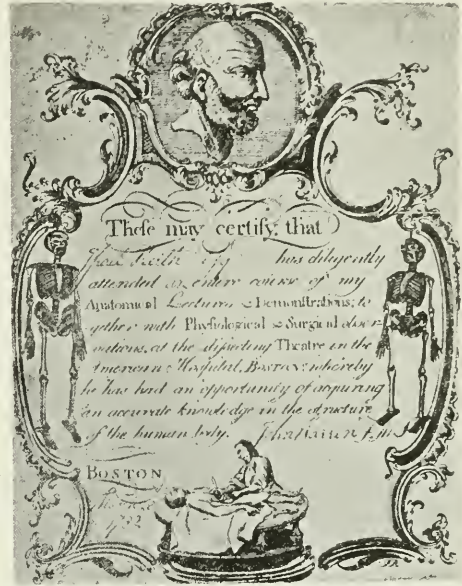 These may certify, that
has diligently
attended an entire course of my
Anatomical Lectures & Demonstrations; to
gether with Physiological & Surgical obser
vations, at the dissecting Theatre in the
American Hospital, Boston; whereby
he has had an opportunity of acquiring
an accurate knowledge in the structure
of the human body.
BOSTON